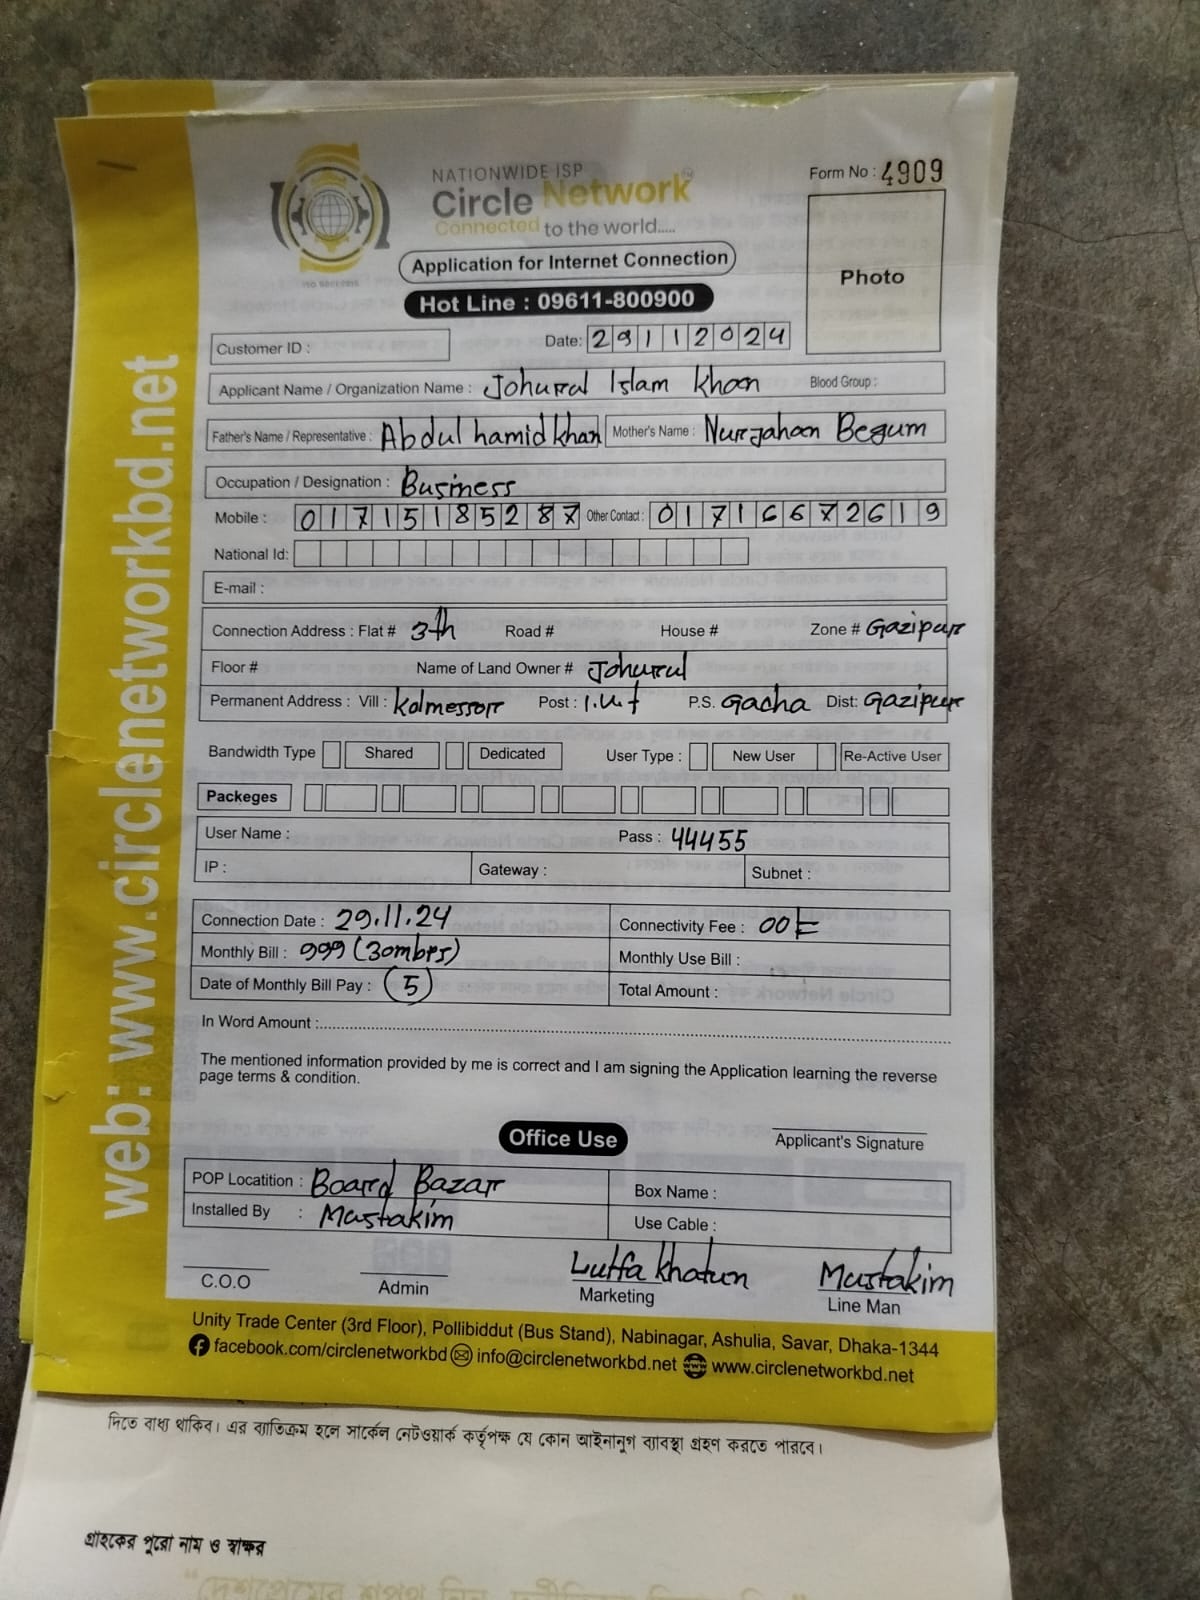 NATIONWIDE ISP
Circle Network
Connected to the world.....
Form No : 4909
Photo
Application for Internet Connection
Hot Line : 09611-800900
Customer ID :
Date: 29112024
Applicant Name / Organization Name : Johurul Islam khan Blood Group :
Father's Name / Representative : Abdul hamid khan Mother's Name : Nurjahan Begum
Occupation / Designation : Business
Mobile : 01715185287 Other Contact : 01716672619
National Id:
E-mail :
Connection Address : Flat # 3th Road # House # Zone # Gazipur
Floor # Name of Land Owner # Johurul
Permanent Address : Vill : kolmessor Post : P.S. Gacha Dist: Gazipur
Bandwidth Type Shared Dedicated User Type : New User Re-Active User
Packeges
User Name : Pass : 44455
IP : Gateway : Subnet :
Connection Date : 29.11.24 Connectivity Fee : 00
Monthly Bill : 999 (30mbps) Monthly Use Bill :
Date of Monthly Bill Pay : 5 Total Amount :
In Word Amount :
The mentioned information provided by me is correct and I am signing the Application learning the reverse
page terms & condition.
Applicant's Signature
Office Use
POP Locatition : Board Bazar Box Name :
Installed By : Mustakim Use Cable :
Lutfa khatun Mustakim
C.O.O Admin Marketing Line Man
Unity Trade Center (3rd Floor), Pollibiddut (Bus Stand), Nabinagar, Ashulia, Savar, Dhaka-1344
facebook.com/circlenetworkbd info@circlenetworkbd.net www.circlenetworkbd.net
web: www.circlenetworkbd.net
দিতে বাধ্য থাকিব। এর ব্যাতিক্রম হলে সার্কেল নেটওয়ার্ক কর্তৃপক্ষ যে কোন আইনানুগ ব্যাবস্থা গ্রহণ করতে পারবে।
গ্রাহকের পুরো নাম ও স্বাক্ষর